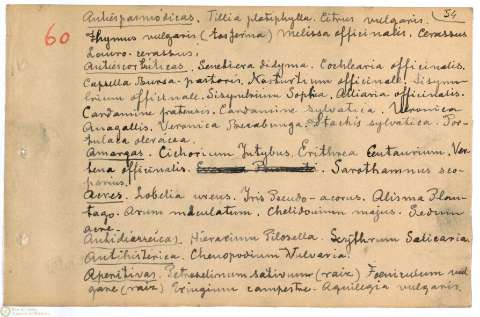 54
60
Antiespasmodicas. Tillia platiphylla. Citrus vulgaris.
Thymus vulgaris (tosferina) Melissa officinalis. Cerassus
Lauro-cerassus.
Antiescorbúticas. Senebiera didyma. Cochlearia officinalis.
Capsella Bursa-pastoris. Nasturtium officinale. Sisym-
brium officinale. Sisymbrium Sophia. Alliaria officinalis.
Cardamine pratensis. Cardamine sylvatica. Veronica
Anagallis. Veronica Becabunga. Stachis sylvatica. Por-
tulaca oleracea.
Amargas. Cichorium Intybus. Erithrea Centaurium. Ver-
bena officinalis. Sarothamnus sco-
parius.
Acres. Lobelia urens. Iris Pseudo-acorus. Alisma Plan-
tago. Arum maculatum. Chelidonium majus. Sedum
acre.
Antidiarreica). Hieracium Pilosella. Lythrum Salicaria.
Antihistérica. Chenopodium Vulvaria.
Aperitivas. Petroselinum sativum (raiz) Foeniculum vul
gare (raiz) Eringium campestre. Aquilegia vulgaris.